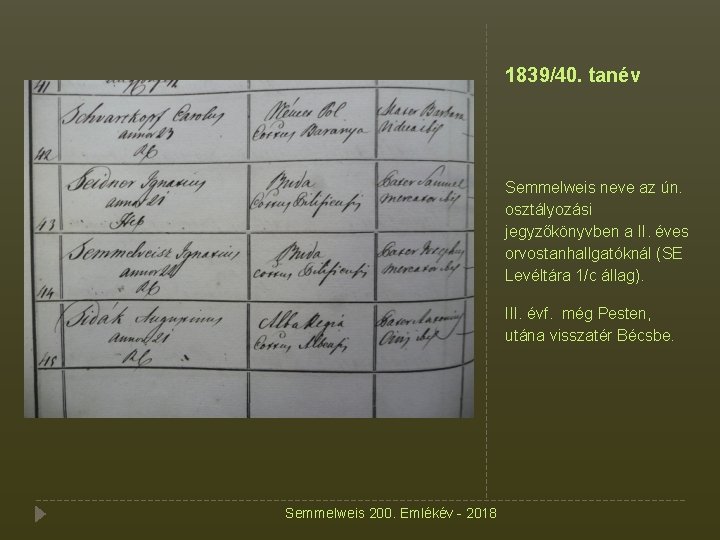 1839/40. tanév
41
Schvarczkopf Carolus
annor 23
42
Német Pol
Cottus Baranya
Mater Barbara
Seidner Ignatius
annor 21
43
Buda
Cottus Pilisiensis
Pater Samuel
mercator ibij
Semmelweisz Ignatius
44
Buda
Cottus Pilisiensis
Pater Josephus
mercator ibij
Sidák Augustinus
annor 21
45
Alba Regia
Cottus Albensis
Pater Antonius
Civis ibij
Semmelweis neve az ún.
osztályozási
jegyzőkönyvben a II. éves
orvostanhallgatóknál (SE
Levéltára 1/c állag).
III. évf. még Pesten,
utána visszatér Bécsbe.
Semmelweis 200. Emlékév - 2018